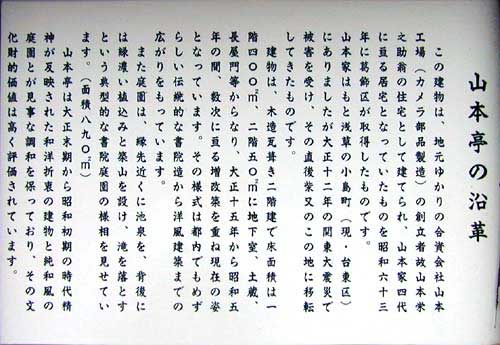 山本亭の沿革
この建物は、地元ゆかりの合資会社山本
工場（カメラ部品製造）の創立者故山本栄
之助翁の住宅として建てられ、山本家四代
に亘る居宅となっていたものを昭和六十三
年に葛飾区が取得したものです。
山本家はもと浅草の小島町（現・台東区）
にありましたが大正十二年の関東大震災で
被害を受け、その直後柴又のこの地に移転
してきたものです。
建物は、木造瓦葺き二階建で床面積は一
階四〇〇㎡、二階五〇㎡に地下室、土蔵、
長屋門等からなり、大正十五年から昭和五
年の間、数次に亘る増改築を重ね現在の姿
となっています。その様式は都内でもめず
らしい伝統的な書院造から洋風建築までの
広がりをもっています。
また庭園は、縁先近くに池泉を、背後に
は緑濃い植込みと築山を設け、滝を落とす
という典型的な書院庭園の様相を見せてい
ます。（面積八九〇㎡）
山本亭は大正末期から昭和初期の時代精
神が反映された和洋折衷の建物と純和風の
庭園とが見事な調和を保っており、その文
化財的価値は高く評価されています。